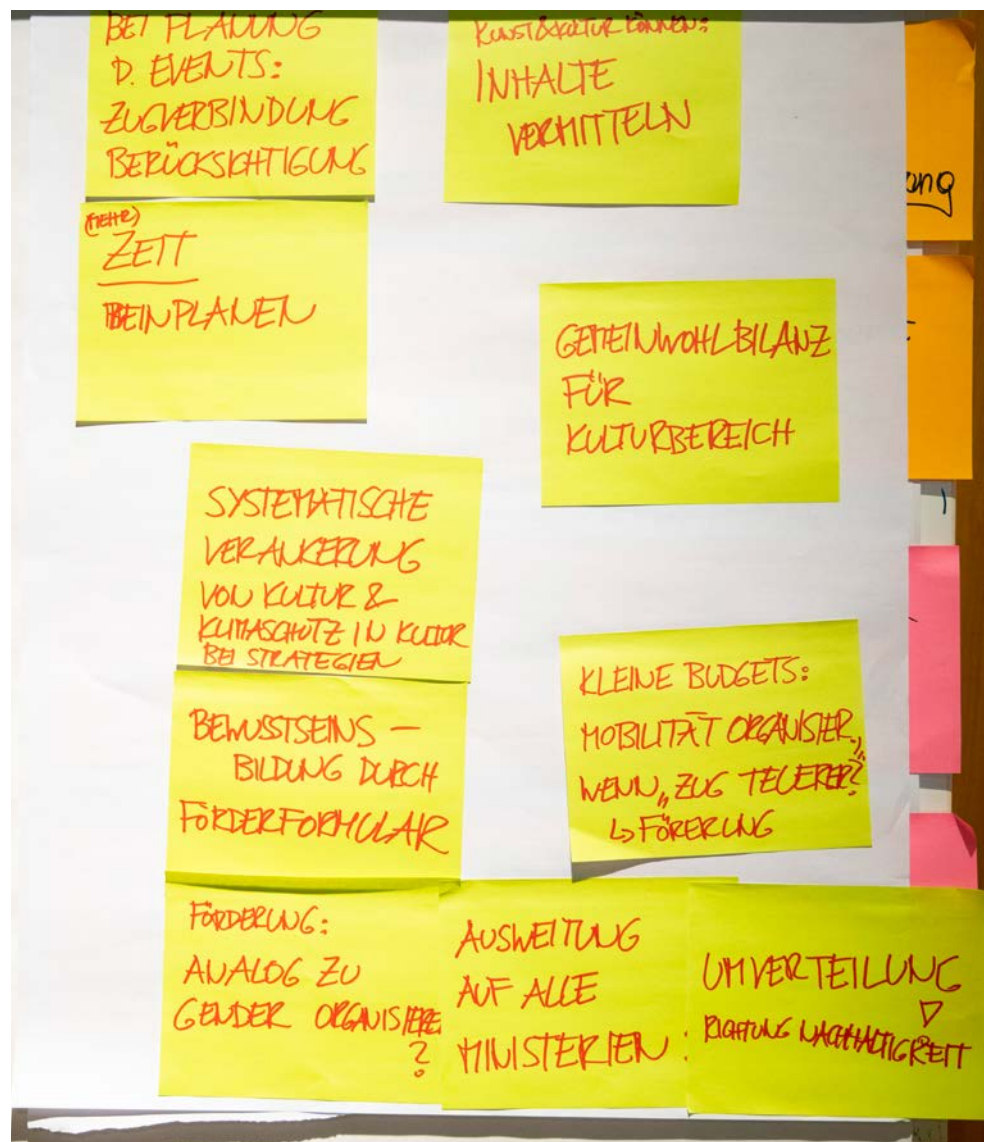 BEI PLANUNG
D. EVENTS:
ZUGVERBINDUNG
BERÜCKSICHTIGUNG
KUNST&KULTUR KÖNNEN:
INHALTE
VERMITTELN
(MEHR)
ZEIT
BEINPLANEN
GEMEINWOHLBILANZ
FÜR
KULTURBEREICH
SYSTEMATISCHE
VERANKERUNG
VON KULTUR &
KLIMASCHUTZ IN KULTUR
BEI STRATEGIEN
BEWUSSTSEINS –
BILDUNG DURCH
FÖRDERFORMULAR
KLEINE BUDGETS:
MOBILITÄT ORGANISIER.,
WENN „ZUG TEUERER?
↳ FÖRERUNG
FÖRDERUNG:
ANALOG ZU
GENDER ORGANISIERE
?
AUSWEITUNG
AUF ALLE
MINISTERIEN :
UMVERTEILUNG
RICHTUNG NACHHALTIGKEIT
ang